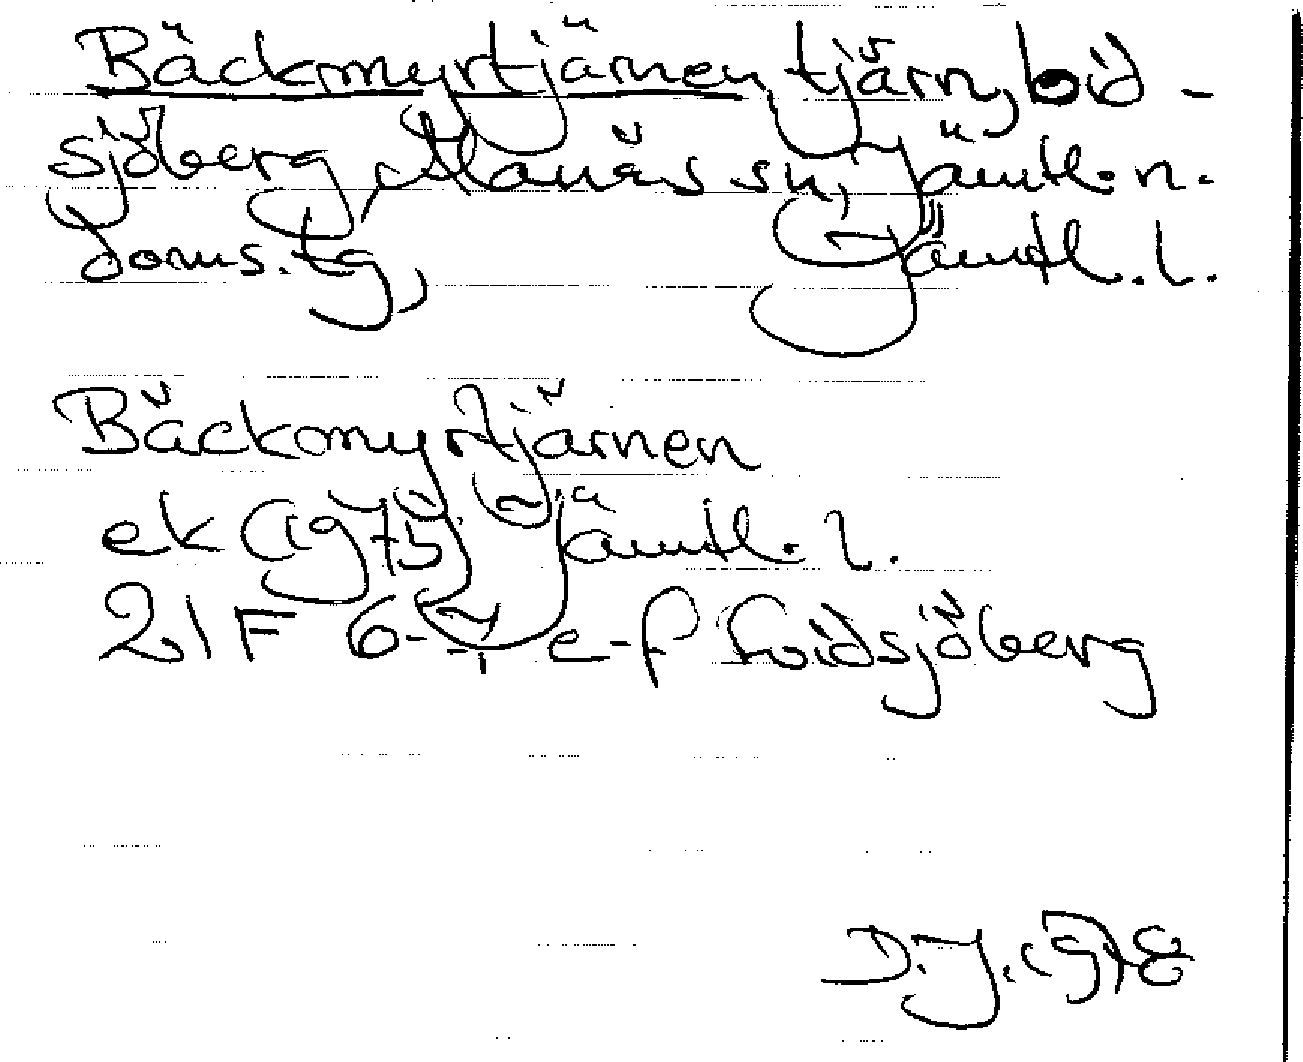 Bäckmyrtjärnen, tjärn, Loid-
sjöberg, Alanäs sn, Jämtl. n.
doms. tg, Jämtl. l.
Bäckmyrtjärnen
ek (1975) Jämtl. l.
21F 6-7 e-f Loidsjöberg
D.J. 1978